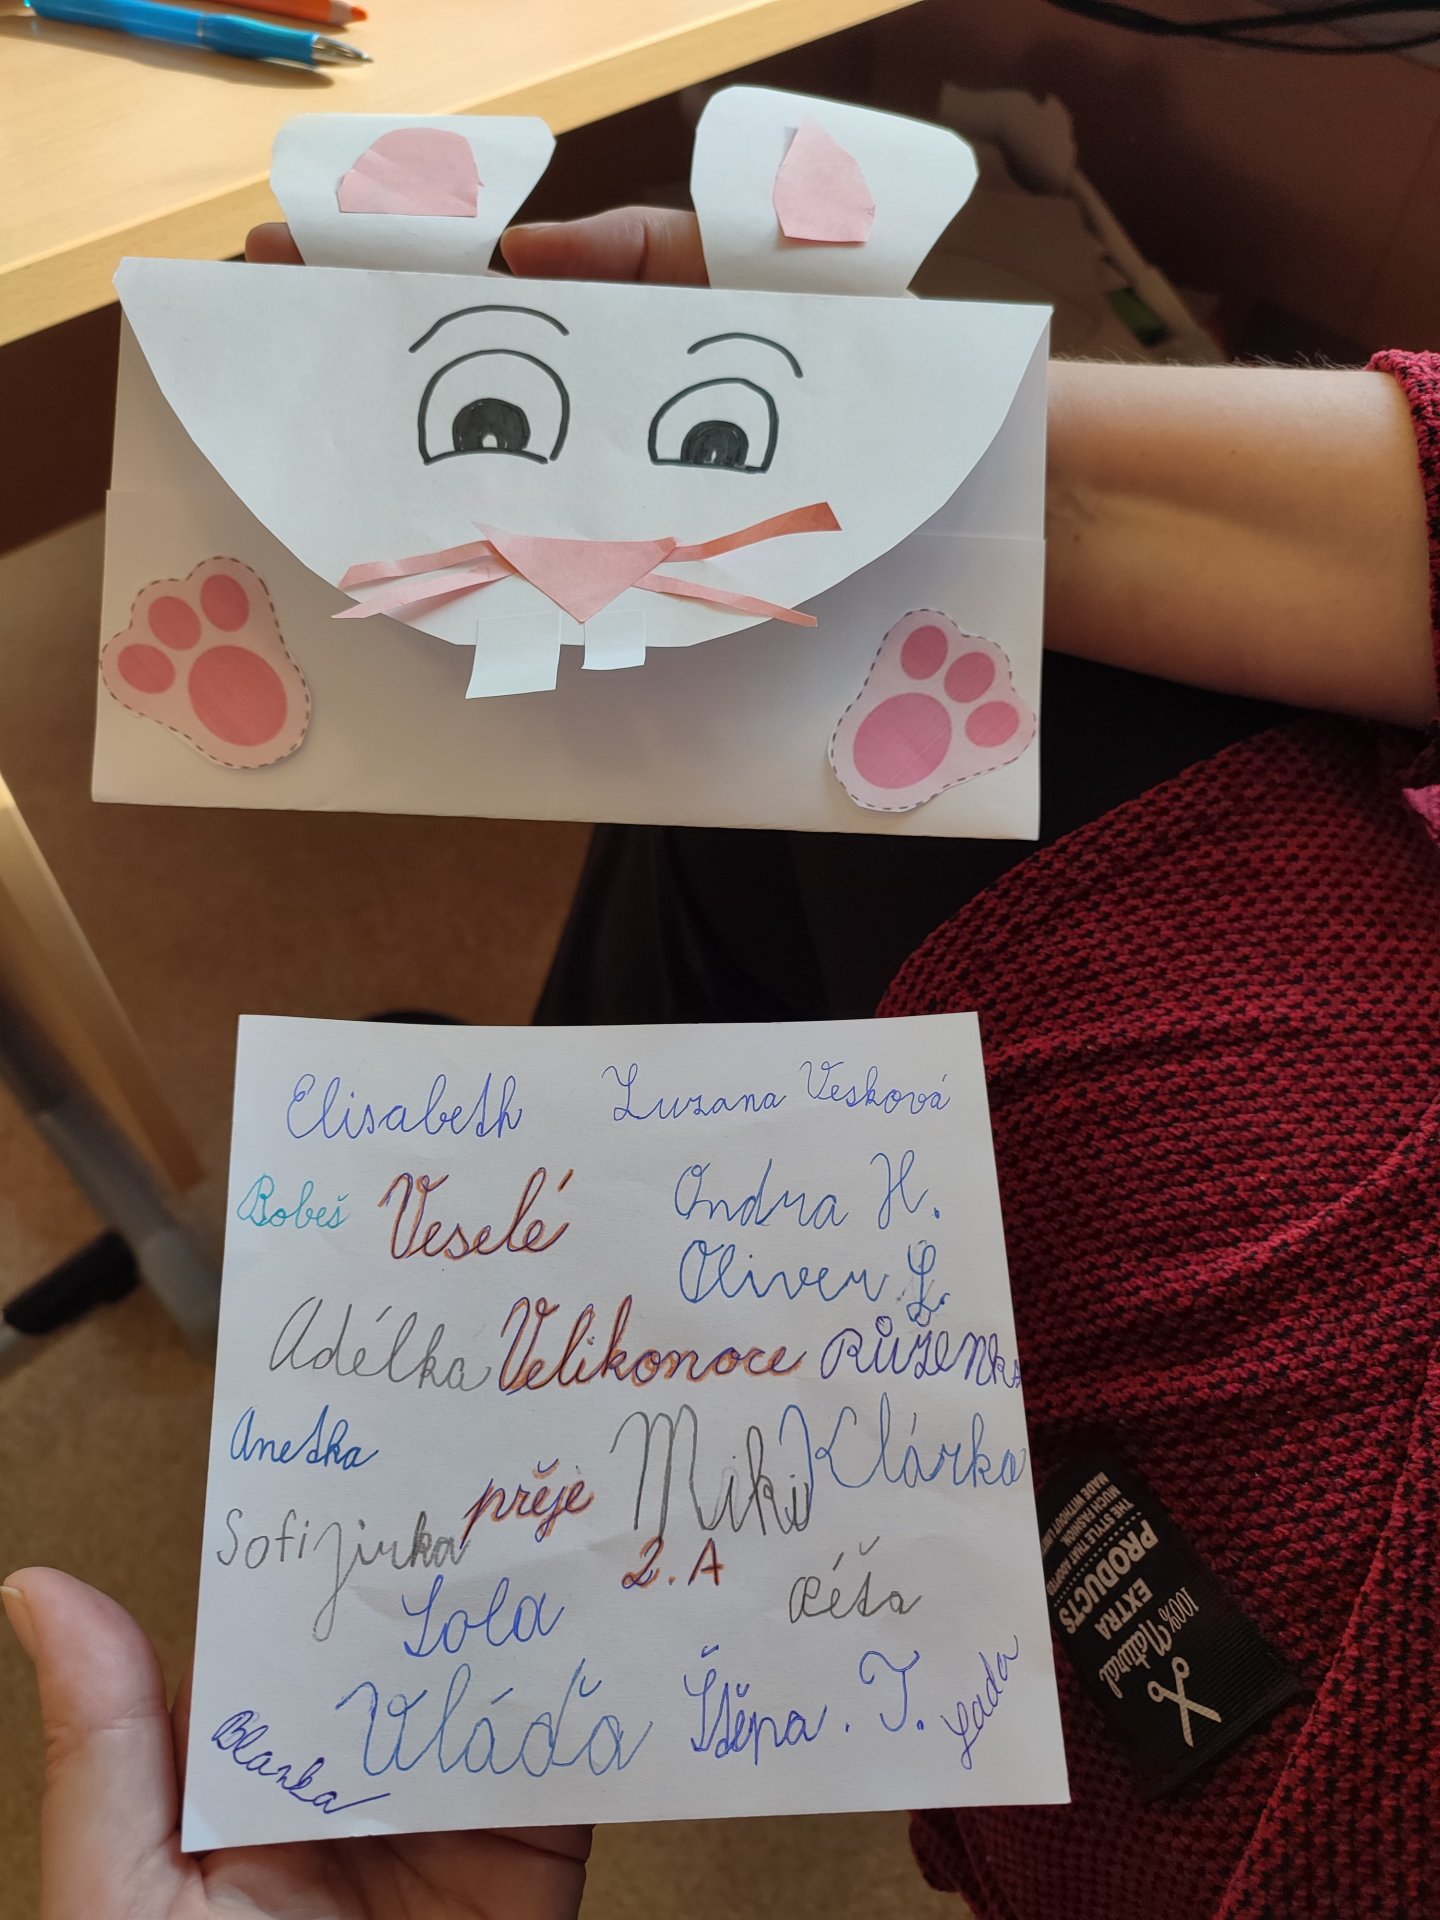 Elisabeth Zuzana Vesková
Bobeš Veselé Ondra H.
Oliver L.
Adélka Velikonoce Růženka
Anetka přeje Miki Klárka
Sofi Jirka 2.A
Lola Péťa
Vláďa Štěpa. T. Lada
Blanka
100% Natural
EXTRA
PRODUCTS
THE STYLE THAT ADOPTED
MUCH FASHION.